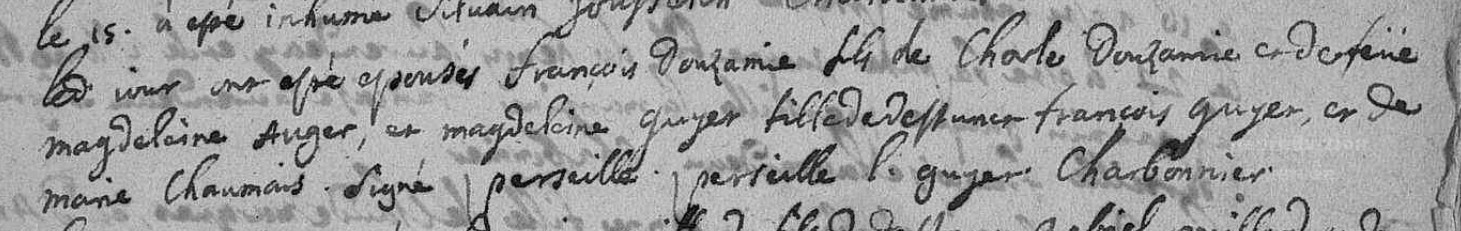 le 15. a esté inhumé Silvain
led. iour ont esté epousés françois Douzamie fils de Charle Douzamie et de feüe
magdeleine Auger, et magdeleine guyet fille de deffunct françois guyet, et de
marie Chaumais. Signé perseille. perseille l. guyet. Charbonnier.